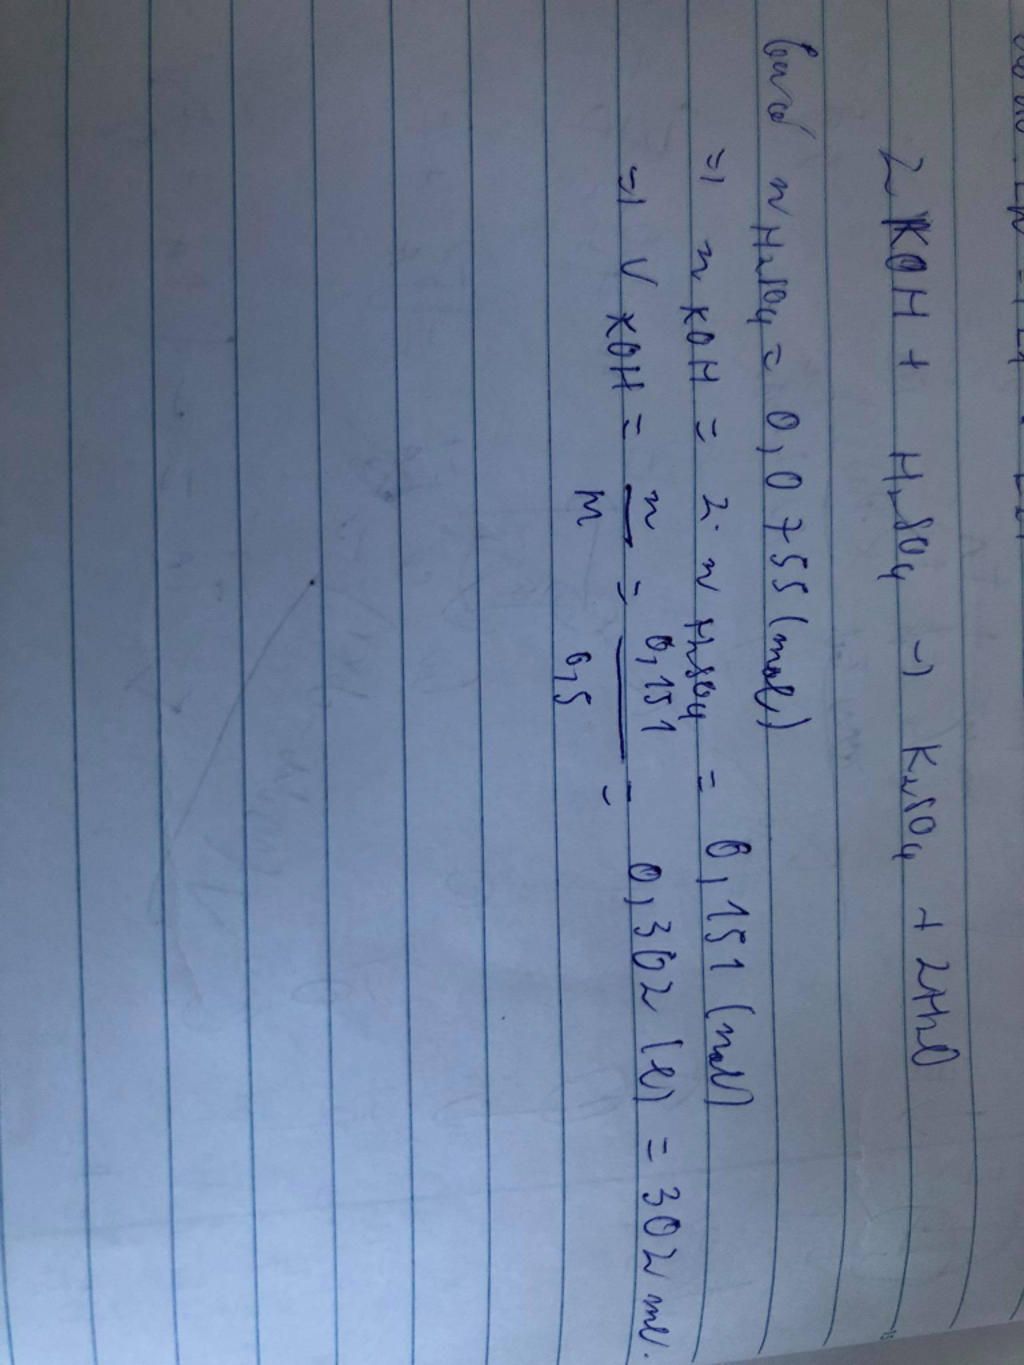 2KOH + H2SO4 → K2SO4 + 2H2O
Có nH2SO4 = 0,0755 (mol)
=> nKOH = 2. nH2SO4 = 0,151 (mol)
=> V KOH = n/M = 0,151/0,5 = 0,302 (l) = 302 ml.